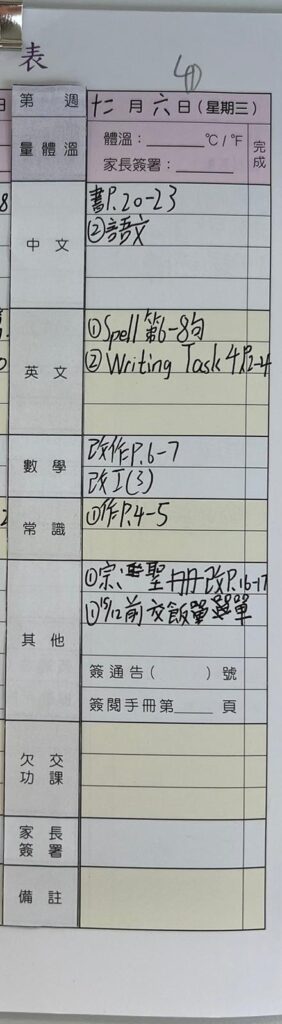 表
4①
第 週 十二月六日(星期三)
量體溫 體溫：______ ℃/℉ 完成
家長簽署：______
中文 書P.20-23
②語文
英文 ①Spell 第6-8句
② Writing Task 4 P.2-4
數學 改作P.6-7
改工(3)
常識 ①作P.4-5
其他 ①宗：聖冊改P.16-17
①15/12前交飯單選單
簽通告( )號
簽閱手冊第____頁
欠交功課
家長簽署
備註